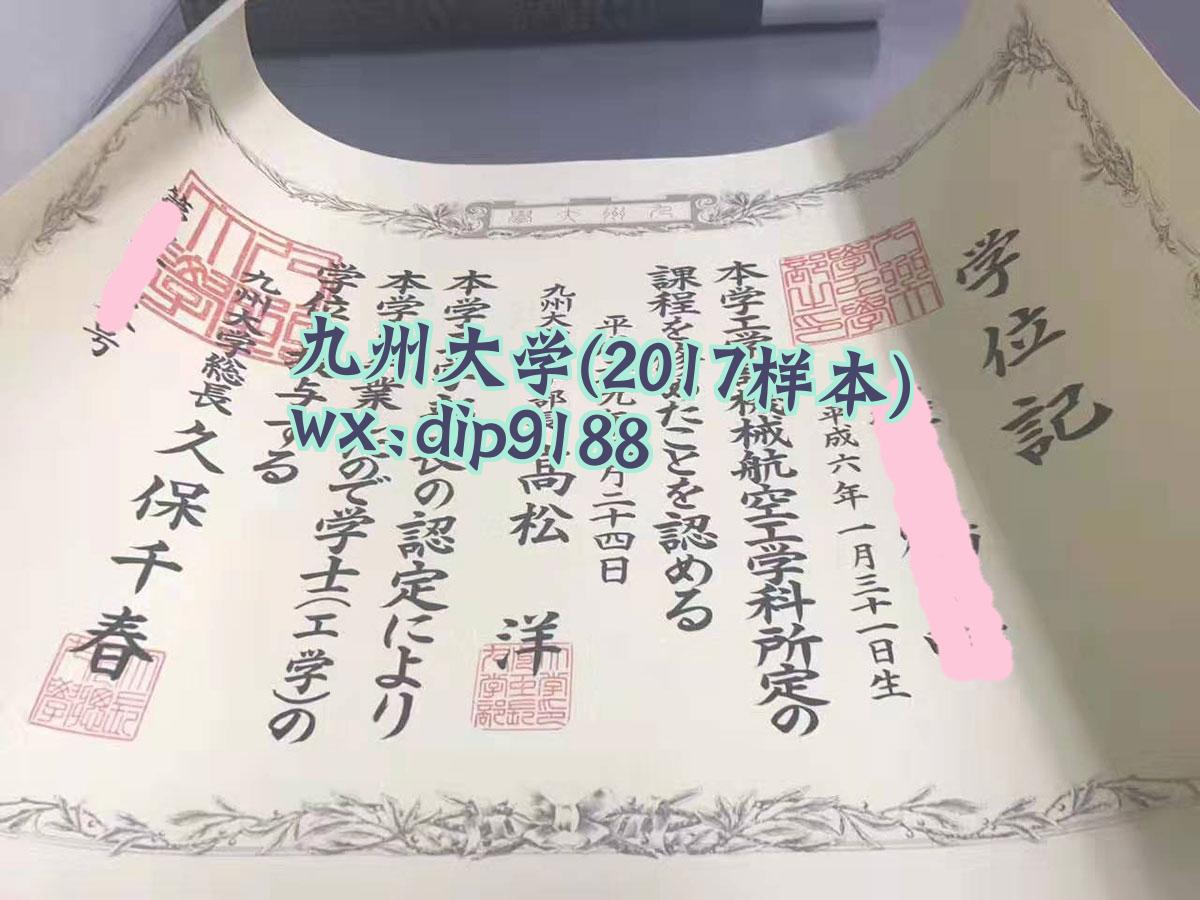 九州大學
学位記
平成六年一月三十一日生
本学工学 械航空工学科所定の
課程を たことを認める
平 二十四日
九州大 髙松 洋
本学 の認定により
本学 業 ので学士(工学)の
学位 与する
九州大学総長 久保千春
号
九州大学(2017样本)
wx:dip9188